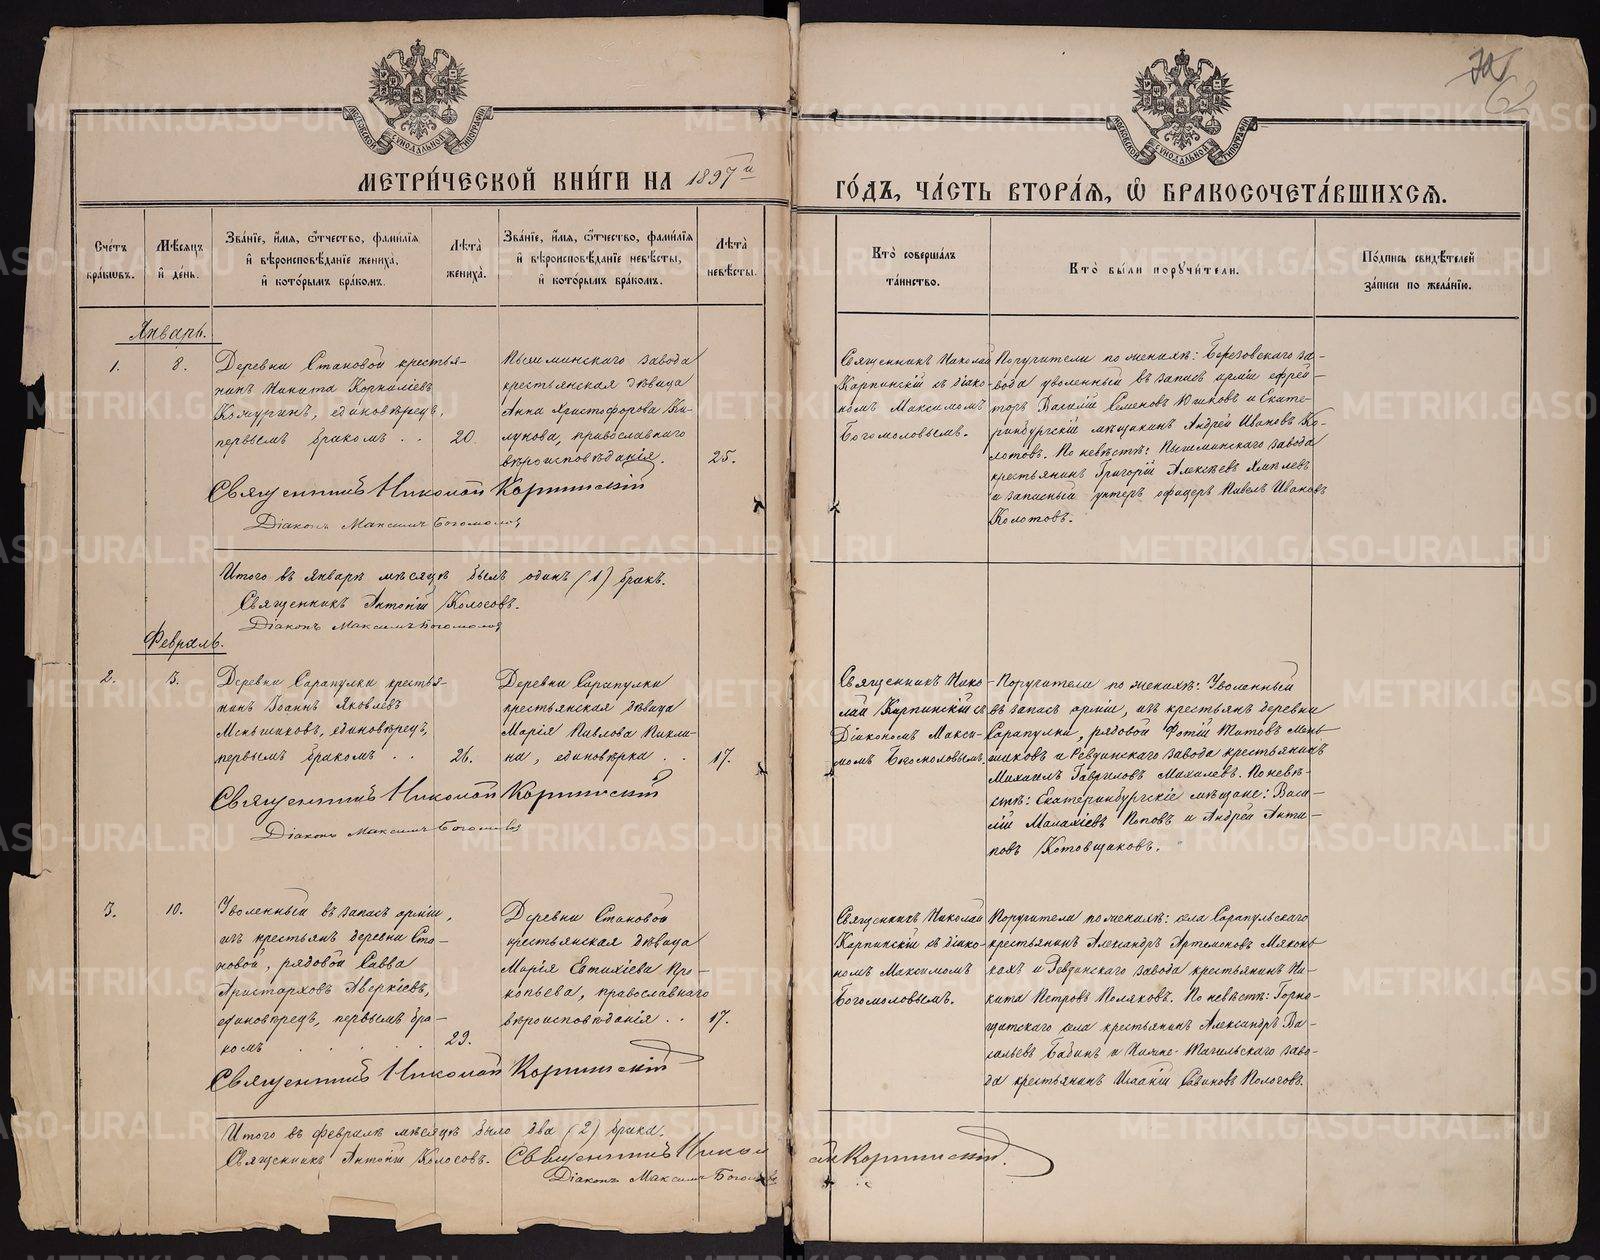 МЕТРИ́ЧЕСКОЙ КНИ́ГИ НА 1897й
ГО́ДЪ, ЧА́СТЬ ВТОРА́Ѧ, Ѽ БРАКОСОЧЕТА́ВШИХСѦ.
Сче́тъ бра́кѡвъ.
Мѣ́сѧцъ и҆ де́нь.
Зва́нїе, и҆́мѧ, ѻ҆́тчество, фами́лїѧ и҆ вѣроисповѣ́данїе жениха̀, и҆ кото́рымъ бра́комъ.
Лѣ́та жениха̀.
Зва́нїе, и҆́мѧ, ѻ҆́тчество, фами́лїѧ и҆ вѣроисповѣ́данїе невѣ́сты, и҆ кото́рымъ бра́комъ.
Лѣ́та невѣ́сты.
Кто̀ соверша́лъ та́инство.
Кто̀ бы́ли поручи́тели.
По́дпись свидѣ́телей за́писи по жела́нїю.
Январь.
1.
8.
Деревни Становой крестья-
нинъ Никита Корниліевъ
Кочуринъ, единовѣрецъ,
первымъ бракомъ . .
20.
Пышминскаго завода
крестьянская дѣвица
Анна Христофорова Ки-
лунова, православнаго
вѣроисповѣданія.
25.
Священникъ Николай
Карпинскій съ діако-
номъ Максимомъ
Богомоловымъ.
Поручители по женихѣ: Березовскаго за-
вода уволенный въ запасъ арміи ефрей-
торъ Василій Семеновъ Юшковъ и Екате-
ринбургскій мѣщанинъ Андрей Ивановъ Ко-
лотовъ. По невѣстѣ: Пышминскаго завода
крестьянинъ Григорій Алексѣевъ Хмелевъ
и запасный унтеръ офицеръ Павелъ Ивановъ
Колотовъ.
Священникъ Николай Карпинскій
Діаконъ Максимъ Богомоловъ
Итого въ январѣ мѣсяцѣ былъ одинъ (1) бракъ.
Священникъ Антоній Колосовъ.
Діаконъ Максимъ Богомоловъ
Февраль.
2.
3.
Деревни Сарапулки крестья-
нинъ Іоаннъ Яковлевъ
Меньшиковъ, единовѣрецъ,
первымъ бракомъ . .
26.
Деревни Сарапулки
крестьянская дѣвица
Марія Павлова Пикли-
на, единовѣрка . .
17.
Священникъ Нико-
лай Карпинскій съ
Діакономъ Макси-
момъ Богомоловымъ.
Поручители по женихѣ: Уволенный
въ запасъ арміи, изъ крестьянъ деревни
Сарапулки, рядовой Фотій Титовъ Мень-
шиковъ и Ревдинскаго завода крестьянинъ
Михаилъ Гавриловъ Махалевъ. По невѣ-
стѣ: Екатеринбургскіе мѣщане: Васи-
лій Малахіевъ Поповъ и Андрей Анти-
повъ Котовщиковъ.
Священникъ Николай Карпинскій
Діаконъ Максимъ Богомоловъ
3.
10.
Уволенный въ запасъ арміи,
изъ крестьянъ деревни Ста-
новой, рядовой Савва
Аристарховъ Аверкіевъ,
единовѣрецъ, первымъ бра-
комъ . . . .
29.
Деревни Становой
крестьянская дѣвица
Марія Евтихіева Про-
копьева, православнаго
вѣроисповѣданія . .
17.
Священникъ Николай
Карпинскій съ діако-
номъ Максимомъ
Богомоловымъ.
Поручители по женихѣ: села Сарапульскаго
крестьянинъ Александръ Артемоновъ Мяконь-
кихъ и Ревдинскаго завода крестьянинъ Ни-
кита Петровъ Поляковъ. По невѣстѣ: Горно-
щитскаго села крестьянинъ Александръ Ва-
сильевъ Бабинъ и Нижне-Тагильскаго заво-
да крестьянинъ Исаакій Савиновъ Пологовъ.
Священникъ Николай Карпинскій
Итого въ февралѣ мѣсяцѣ было два (2) брака.
Священникъ Антоній Колосовъ. Священникъ Николай Карпинскій.
Діаконъ Максимъ Богомоловъ
62
METRIKI.GASO-URAL.RU